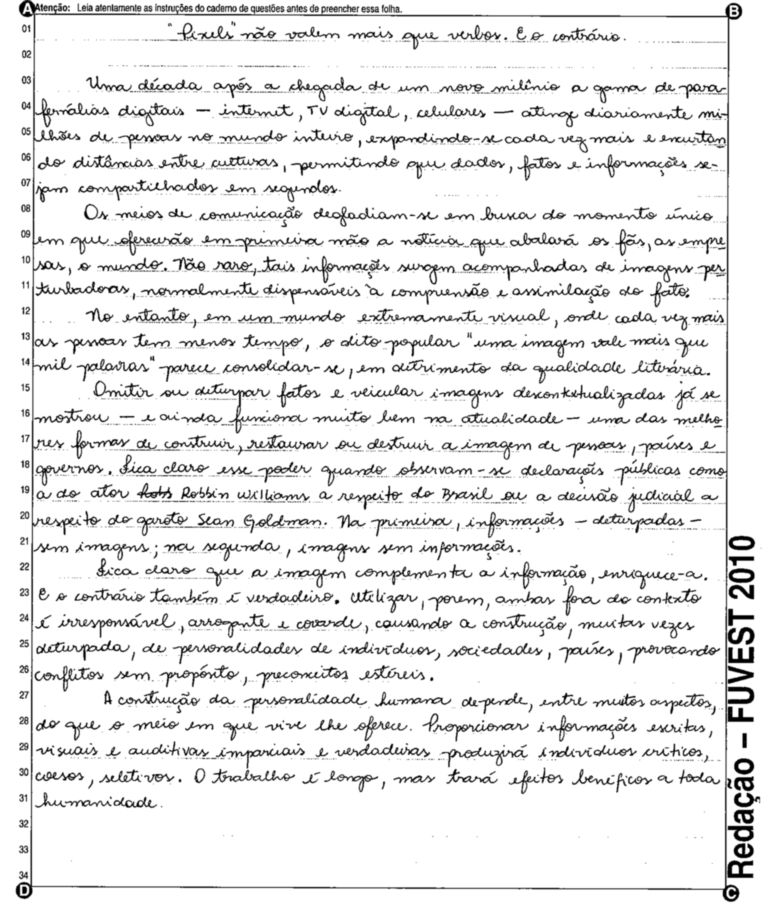 A Atenção: Leia atentamente as instruções do caderno de questões antes de preencher essa folha. B
01 "Pixels" não valem mais que verbos. E o contrário.
02
03 Uma década após a chegada de um novo milênio a gama de para-
04 fernálias digitais — internet, TV digital, celulares — atinge diariamente mi-
05 lhões de pessoas no mundo inteiro, expandindo-se cada vez mais e encurtan
06 do distâncias entre culturas, permitindo que dados, fatos e informações se-
07 jam compartilhados em segundos.
08 Os meios de comunicação degladiam-se em busca do momento único
09 em que oferecerão em primeira mão a notícia que abalará os fãs, as empre
10 sas, o mundo. Não raro, tais informações surgem acompanhadas de imagens per
11 turbadoras, normalmente dispensáveis à compreensão e assimilação do fato.
12 No entanto, em um mundo extremamente visual, onde cada vez mais
13 as pessoas tem menos tempo, o dito popular "uma imagem vale mais que
14 mil palavras" parece consolidar-se, em detrimento da qualidade literária.
15 Omitir ou deturpar fatos e veicular imagens descontextualizadas já se
16 mostrou — e ainda funciona muito bem na atualidade — uma das melho
17 res formas de construir, restaurar ou destruir a imagem de pessoas, países e
18 governos. Fica claro esse poder quando observam-se declarações públicas como
19 a do ator Robbin Williams a respeito do Brasil ou a decisão judicial a
20 respeito do garoto Sean Goldman. Na primeira, informações — deturpadas —
21 sem imagens; na segunda, imagens sem informações.
22 Fica claro que a imagem complementa a informação, enriquece-a.
23 E o contrário também é verdadeiro. Utilizar, porem, ambas fora do contexto
24 é irresponsável, arrogante e covarde, causando a construção, muitas vezes
25 deturpada, de personalidades de indivíduos, sociedades, países, provocando
26 conflitos sem propósito, preconceitos estéreis.
27 A construção da personalidade humana depende, entre muitos aspectos,
28 do que o meio em que vive lhe oferece. Proporcionar informações escritas,
29 visuais e auditivas imparciais e verdadeiras produzirá indivíduos críticos,
30 coesos, seletivos. O trabalho é longo, mas trará efeitos benéficos a toda
31 humanidade.
32
33
34
D C
Redação – FUVEST 2010